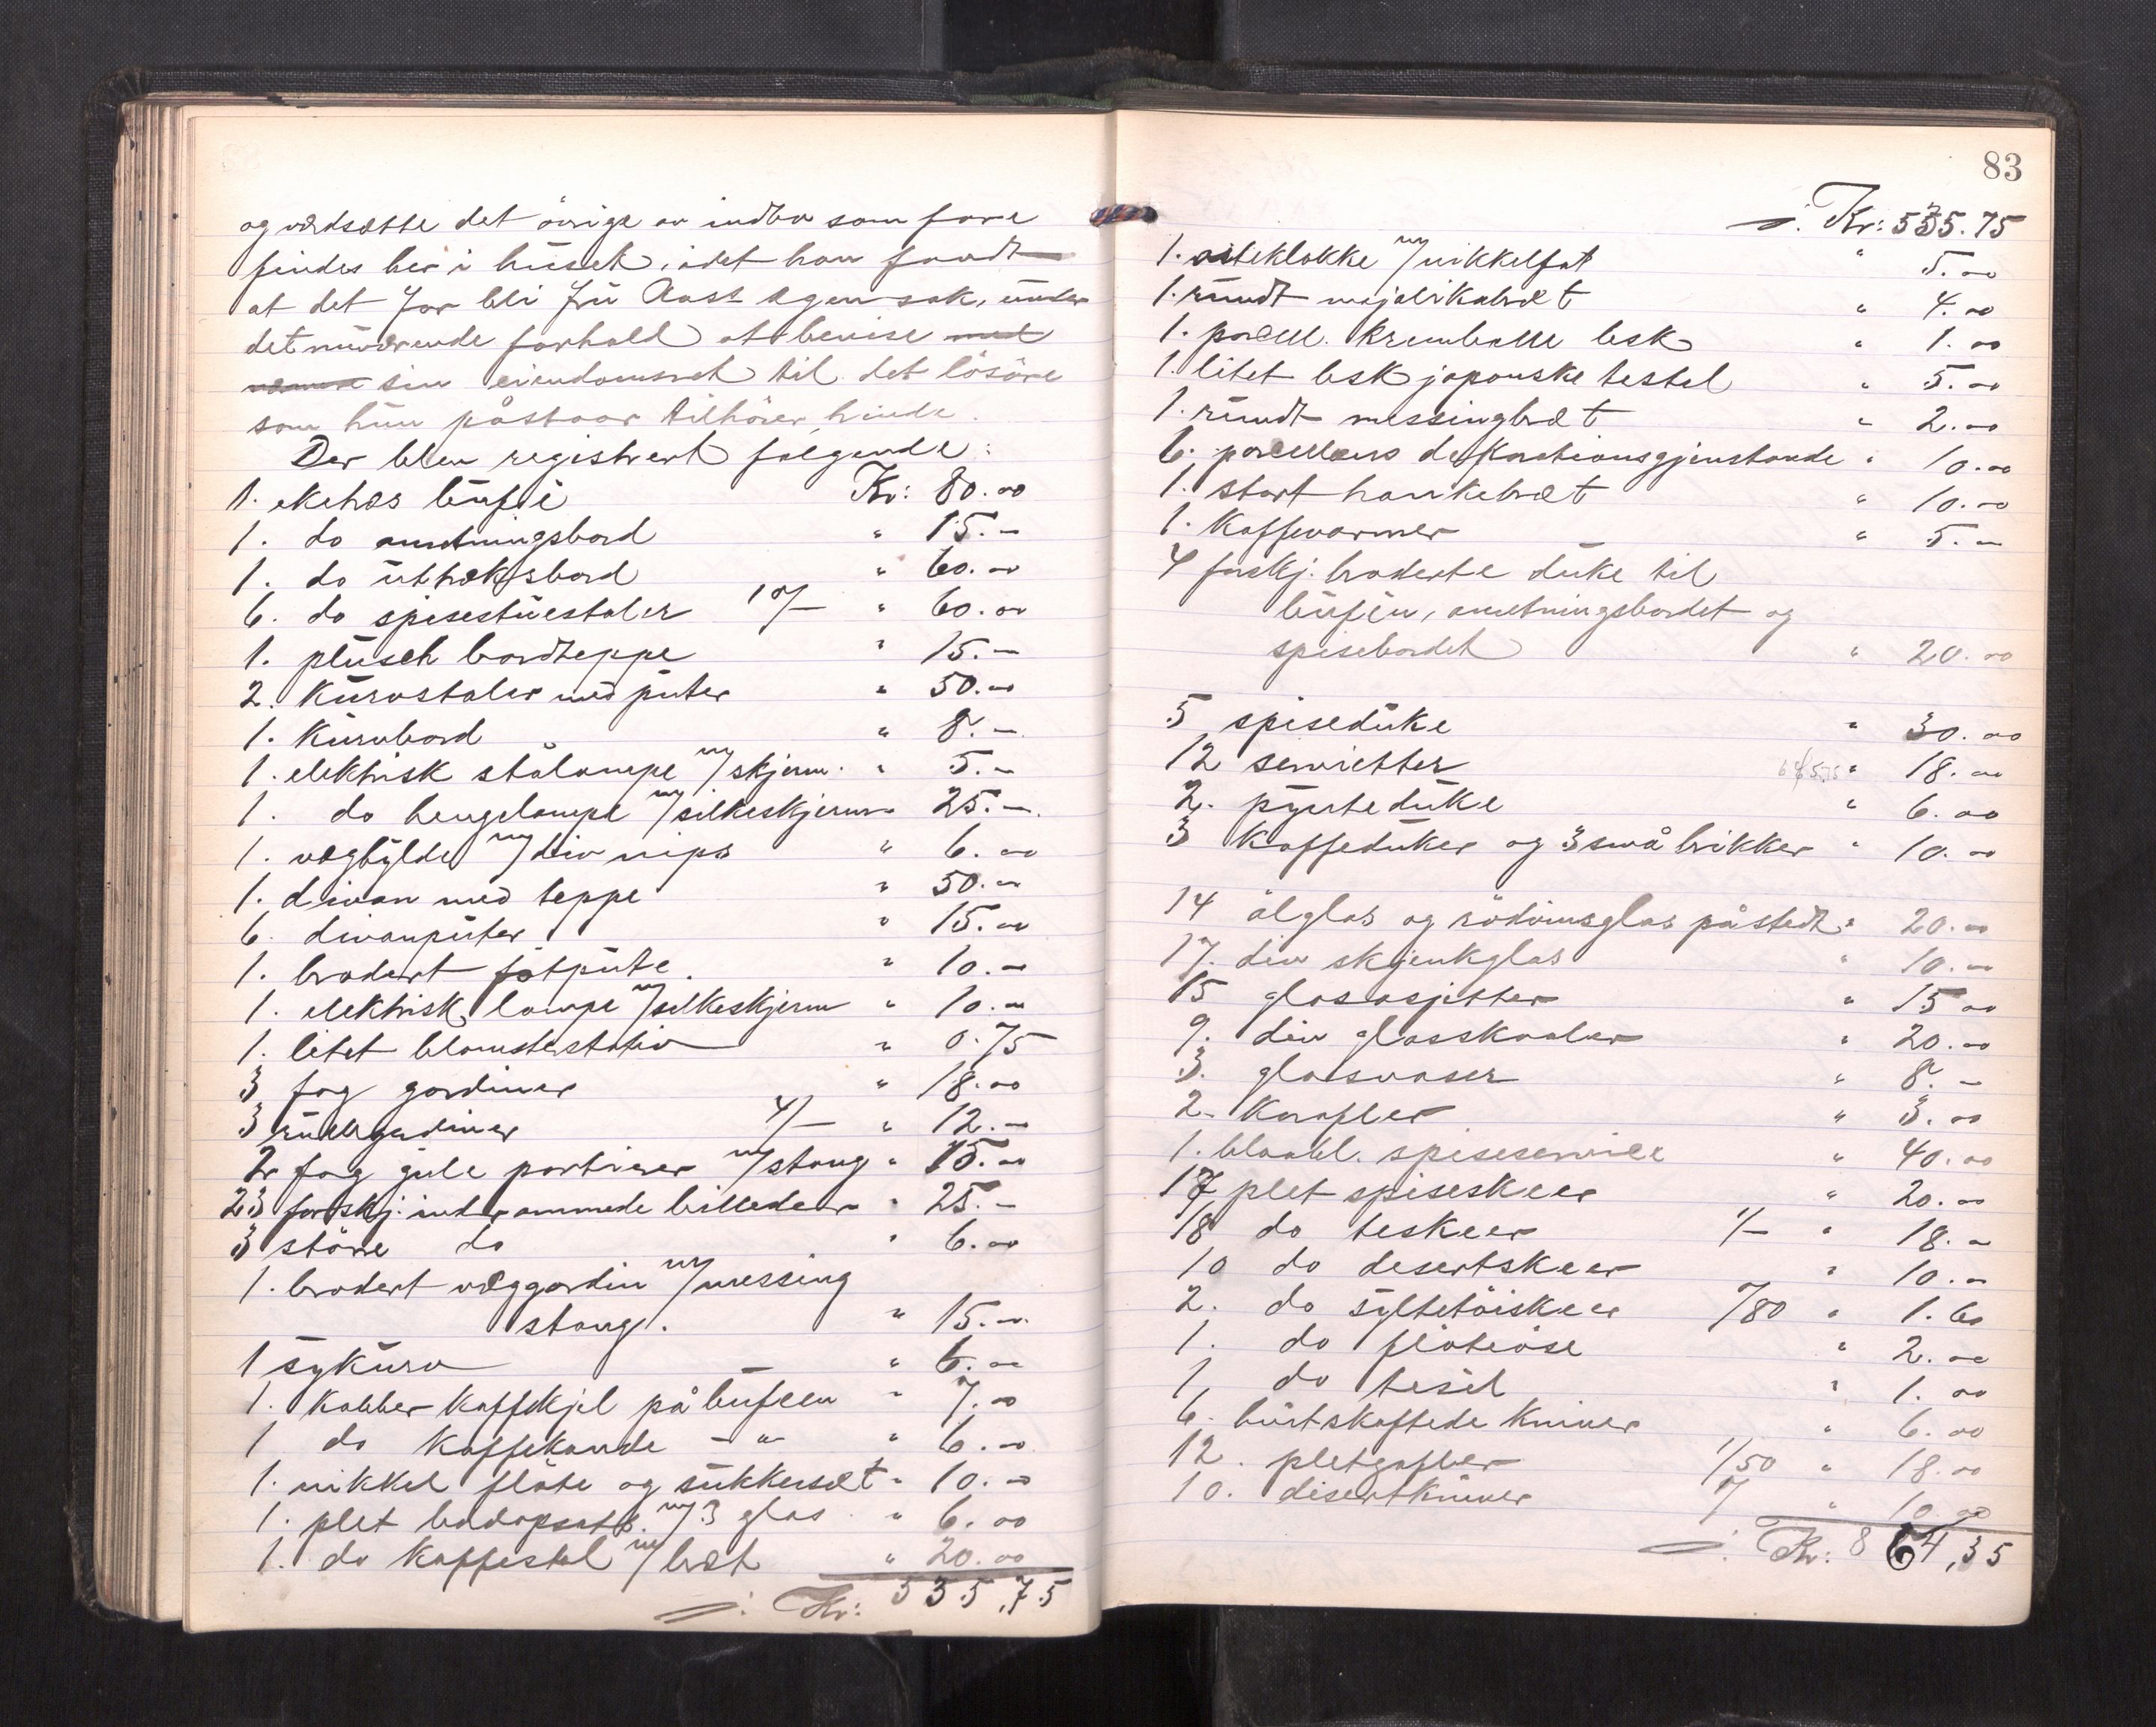 og værdsætte det övrige av indbo som fore
findes her i huset, idet han fandt
at det får bli frü Aast egen sak, under
det nuværende forhold at bevise med
sin eiendomsret til det lösöre
som hün påstaar tilhörer hinde.
Der blev registrert fölgende:
1. ekehæs büfe Kr: 80.00
1. do anretningsbord " 15.-
1. do üttræksbord " 60.00
6. do spisestüestoler 10/- " 60.00
1. plüsch bordteppe " 15.-
2. Kürvstoler med püter " 50.00
1. Kürvbord " 8.-
1. elektrisk stålampe m/skjerm. " 5.-
1. do hengelampe m/silkeskjerm " 25.-
1. væghylde m/div nips " 6.00
1. divan med teppe " 50.00
6. divanpüter " 15.00
1. brodert fotpüte. " 10.00
1. elektrisk lampe m/silkeskjerm " 10.00
1. litet blomsterstativ " 0.75
3 fag gardiner " 18.00
3 rüllegardiner 4/- " 12.-
2 fag güle portierer m/stang " 15.00
23 forskj. indrammede billeder " 25.-
3 störe do " 6.00
1. brodert væggardin m/messing
stang. " 15.00
1 sykürv " 6.00
1. Kobber kaffekjel på büfeen " 7.00
1 do Kaffekande - " - " 6.00
1. nikkel flöte og sükkersæt " 10.00
1. plet bordopsats. m/3 glas " 6.00
1. do Kaffestel m/bræt " 20.00
Kr: 535,75
83
Kr: 535.75
1. osteklokke m/nikkelfat " 5.00
1. ründt majolikabræt " 4.00
1. porcell. Krümbolle besk " 1.00
1. litet besk japanske testel " 5.00
1. ründt messingbræt " 2.00
6. porcellæns dekorationsgjenstande " 10.00
1. stort hankebræt " 10.00
1. Kaffevarmer " 5.00
4 forskj. broderte düke til
büfeen, anretningsbordet og
spisebordet " 20.00
5 spisedüke " 30.00
12 servietter " 18.00
2. pyntedüke " 6.00
3 Kaffedüker og 3 små brikker " 10.00
14 ölglas og rödvinsglas påstedt " 20.00
17. div skjenkglas " 10.00
15 glasasjetter " 15 00
9. div glasskaaler " 20.00
3. glasvaser " 8.-
2. Karafler " 3.00
1. blaabl. spiseservice " 40.00
17 plet spiseskeer " 20.00
18 do teskeer 1/- " 18.00
10 do desertskeer " 10.00
2. do syltetöiskeer /80 " 1.60
1. do flöteöse " 2.00
1, do tesil " 1.00
6. hürtskaftede Kniver " 6.00
12. pletgafler 1/50 " 18.00
10. disertkniver " 10.00
Kr: 864,35